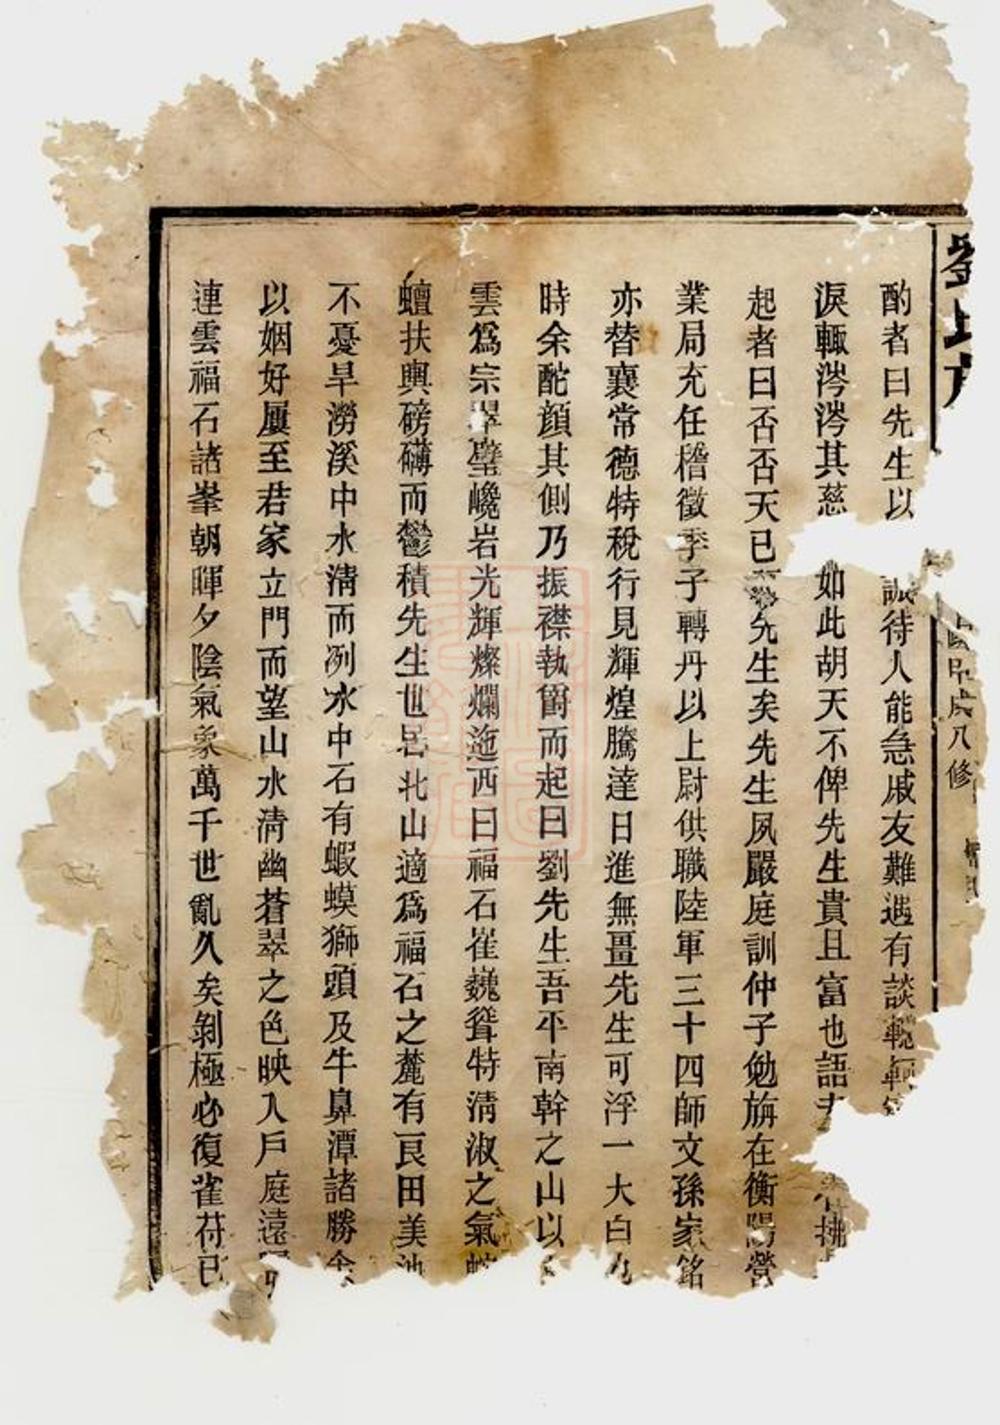 劉氏
八修
酌者曰先生以誠待人能急戚友難遇有談
淚輒涔涔其慈如此胡天不俾先生貴且富也語
起者曰否否天已先生矣先生夙嚴庭訓仲子勉旃在衡陽營
業局充任稽徵季子轉丹以上尉供職陸軍三十四師文孫家銘
亦替襄常德特稅行見輝煌騰達日進無疆先生可浮一大白
時余酡顏其側乃振襟執爵而起曰劉先生吾平南幹之山以
雲爲宗翠璧巉岩光輝燦爛迤西曰福石崔巍聳特淸淑之氣
蟺扶輿磅礴而鬱積先生世居北山適爲福石之麓有良田美池
不憂旱澇溪中水淸而冽水中石有蝦蟆獅頭及牛鼻潭諸勝余
以姻好屢至君家立門而望山水淸幽蒼翠之色映入戶庭遠
連雲福石諸峯朝暉夕陰氣象萬千世亂久矣剝極必復雀苻已